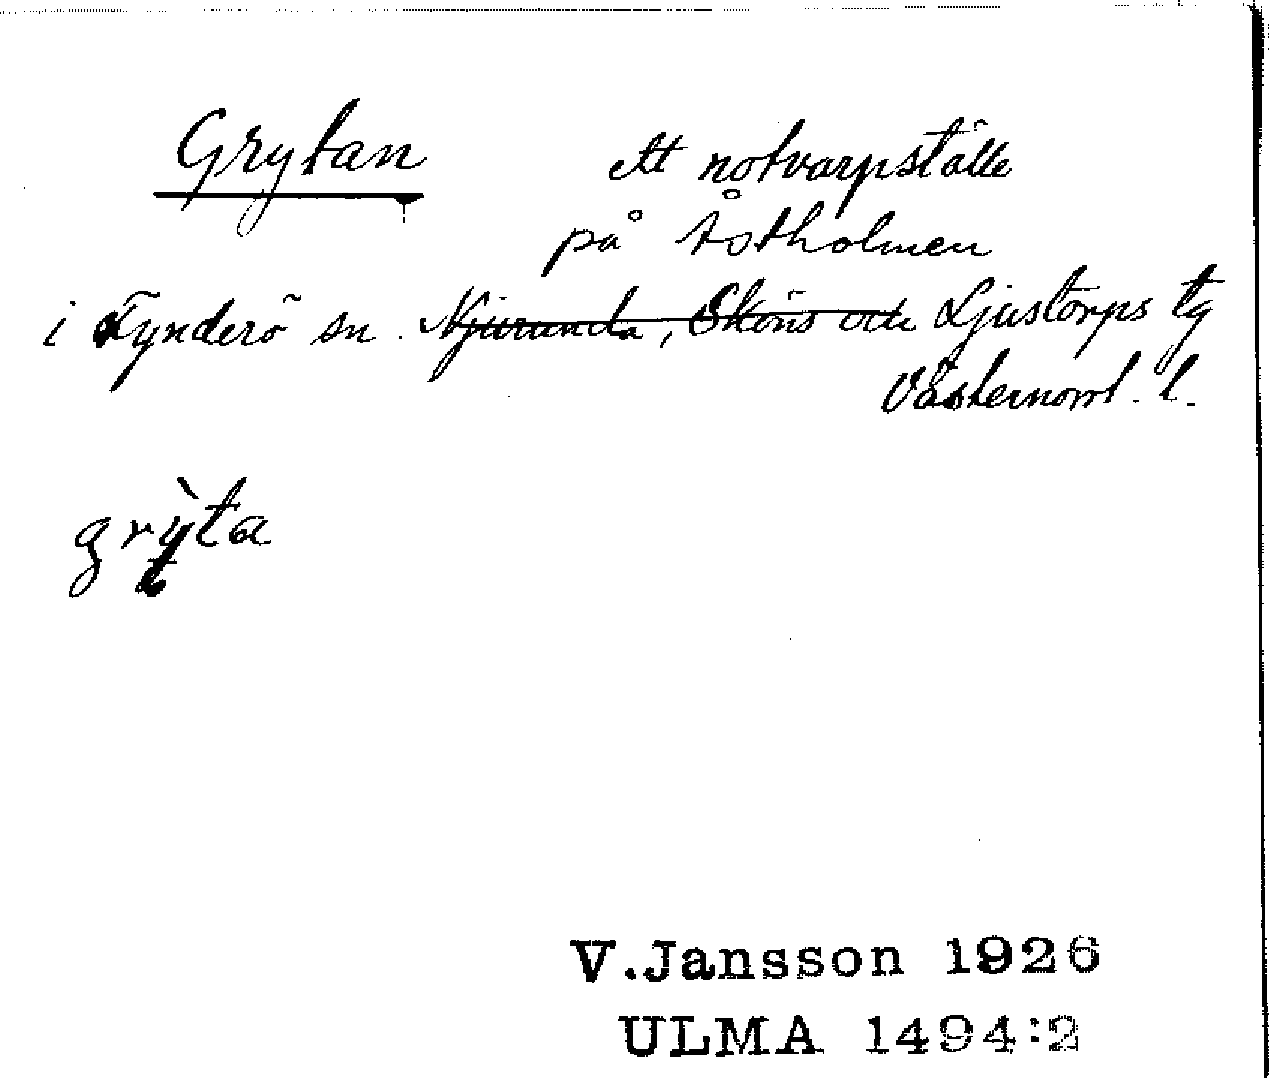 Grytan ett notvarpställe
på Åstholmen
i Tynderö sn. Njurunda, Sköns och Ljustorps tg
Västernorrl. l.
grỳta
V.Jansson 1926
ULMA 1494:2